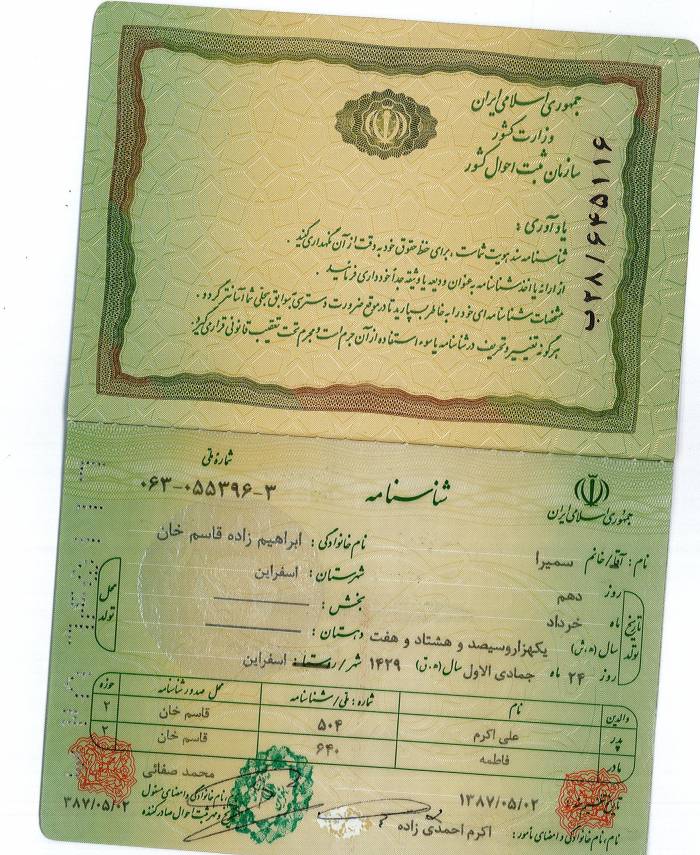 جمهوری اسلامی ایران
وزارت کشور
سازمان ثبت احوال کشور
ب۲۸/۶۴۵۱۱۶
یادآوری :
شناسنامه سند هویت شماست ، برای حفظ حقوق خود به دقت از آن نگهداری کنید .
از ارائه یا اخذ شناسنامه به عنوان ودیعه یا وثیقه جداً خودداری فرمائید .
مشخصات شناسنامه ای خود را به خاطر بسپارید تا در موقع ضرورت دسترسی به سوابق سجلی شما آسانتر گردد .
هرگونه تغییر و تحریف در شناسنامه یا سوء استفاده از آن جرم است و مجرم تحت تعقیب قانونی قرار می گیرد .
جمهوری اسلامی ایران
شناسنامه
شماره ملی
۰۶۳-۰۵۵۳۹۶-۳
نام : آقا/خانم سمیرا
نام خانوادگی : ابراهیم زاده قاسم خان
تاریخ تولد
روز دهم
ماه خرداد
سال (ه.ش) یکهزاروسیصد و هشتاد و هفت
روز ۲۴ ماه جمادی الاول سال (ه.ق) ۱۴۲۹
محل تولد
شهرستان : اسفراین
بخش :
دهستان :
شهر/روستا : اسفراین
والدین نام شماره : ملی/شناسنامه محل صدور شناسنامه حوزه
پدر علی اکرم ۵۰۴ قاسم خان ۲
مادر فاطمه ۶۴۰ قاسم خان ۲
تاریخ تنظیم : ۱۳۸۷/۰۵/۰۲
نام، نام خانوادگی و امضای مأمور : اکرم احمدی زاده
محمد صفائی
نام خانوادگی و امضای مسئول
و مهر ثبت احوال صادرکننده
۳۸۷/۰۵/۰۲